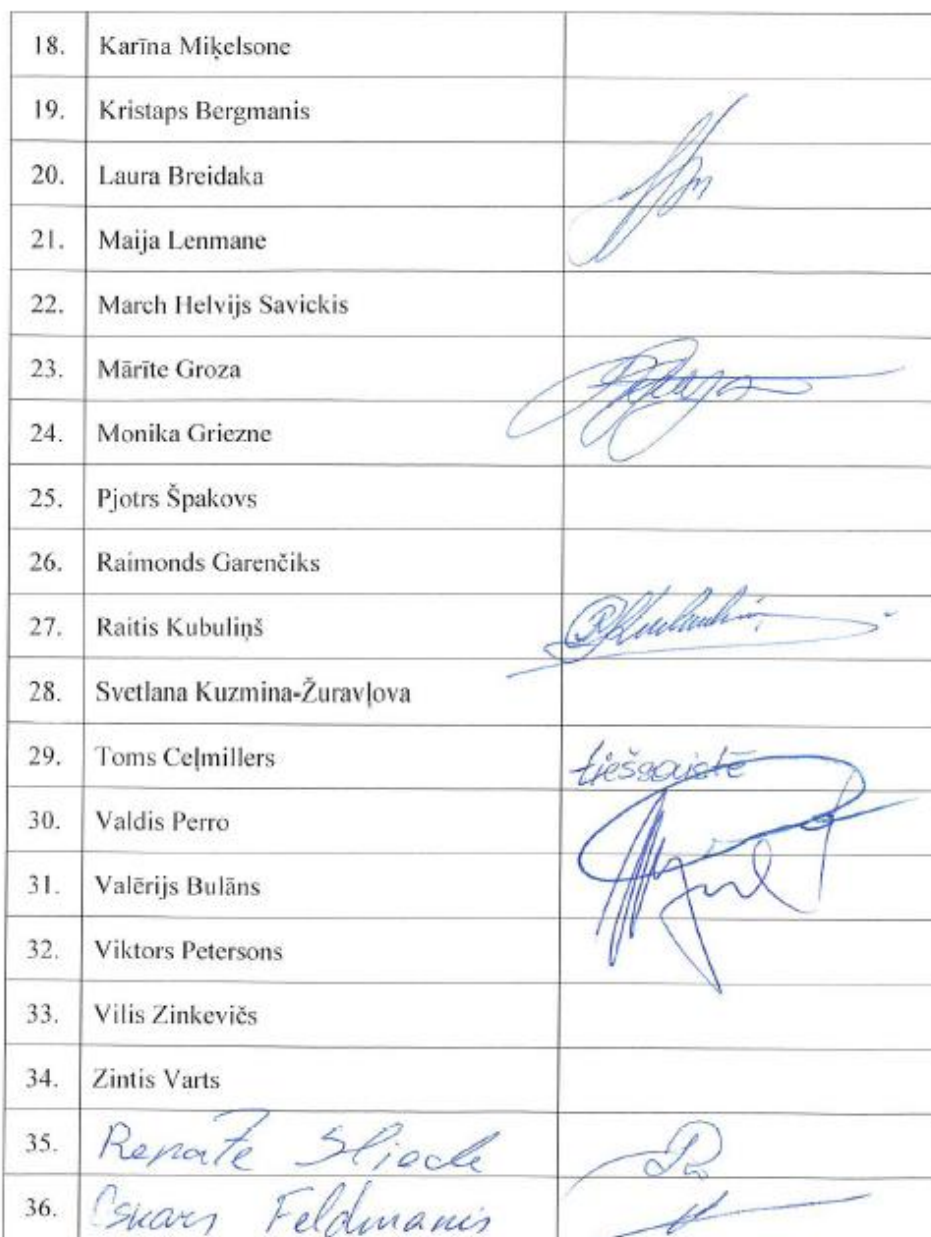 18. Karīna Miķelsone
19. Kristaps Bergmanis
20. Laura Breidaka
21. Maija Lenmane
22. March Helvijs Savickis
23. Mārīte Groza
24. Monika Griezne
25. Pjotrs Špakovs
26. Raimonds Garenčiks
27. Raitis Kubuliņš
28. Svetlana Kuzmina-Žuravļova
29. Toms Ceļmillers tiešsaistē
30. Valdis Perro
31. Valērijs Bulāns
32. Viktors Petersons
33. Vilis Zinkevičs
34. Zintis Varts
35. Renate Sliede
36. Oskars Feldmanis